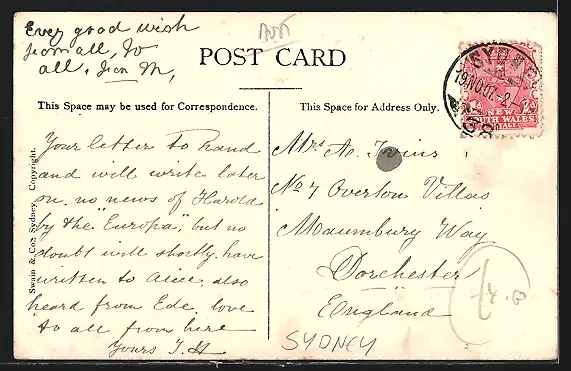 Every good wish
from all, to
all.
POST CARD
This Space may be used for Correspondence.
Your letter to hand
and will write later
on. no news of Harold
by the "Europa", but no
doubt will shortly. have
written to Alice, also
heard from Ede. love
to all from here
Yours J. H
Swain & Co., Sydney. Copyright.
This Space for Address Only.
Mrs A.
No 7 Overton Villas
Maumbury Way
Dorchester
England
SYDNEY
SYDNEY
19 NO 07
NEW
SOUTH WALES
POSTAGE